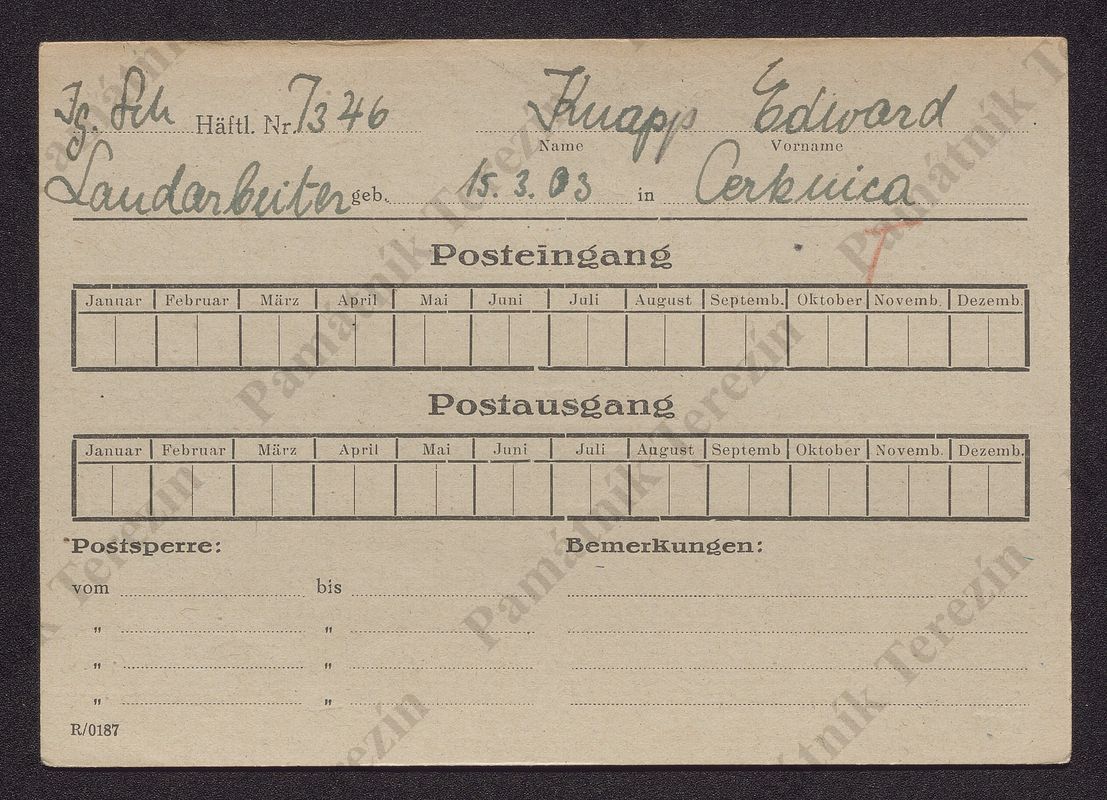 Jg. Sch Häftl. Nr. 7346 Knapp Edward
Name Vorname
Landarbeiter geb. 15.3.03 in Cerknica
Posteingang
Januar Februar März April Mai Juni Juli August Septemb. Oktober Novemb. Dezemb.
Postausgang
Januar Februar März April Mai Juni Juli August Septemb Oktober Novemb. Dezemb.
Postsperre: Bemerkungen:
vom bis
" "
" "
" "
R/0187
Památník Terezín
Památník Terezín
Památník Terezín
Památník Terezín